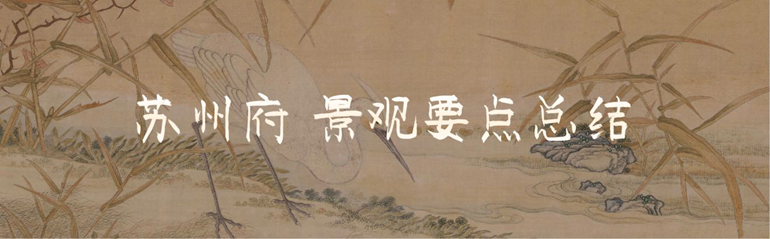 苏州府 景观要点总结